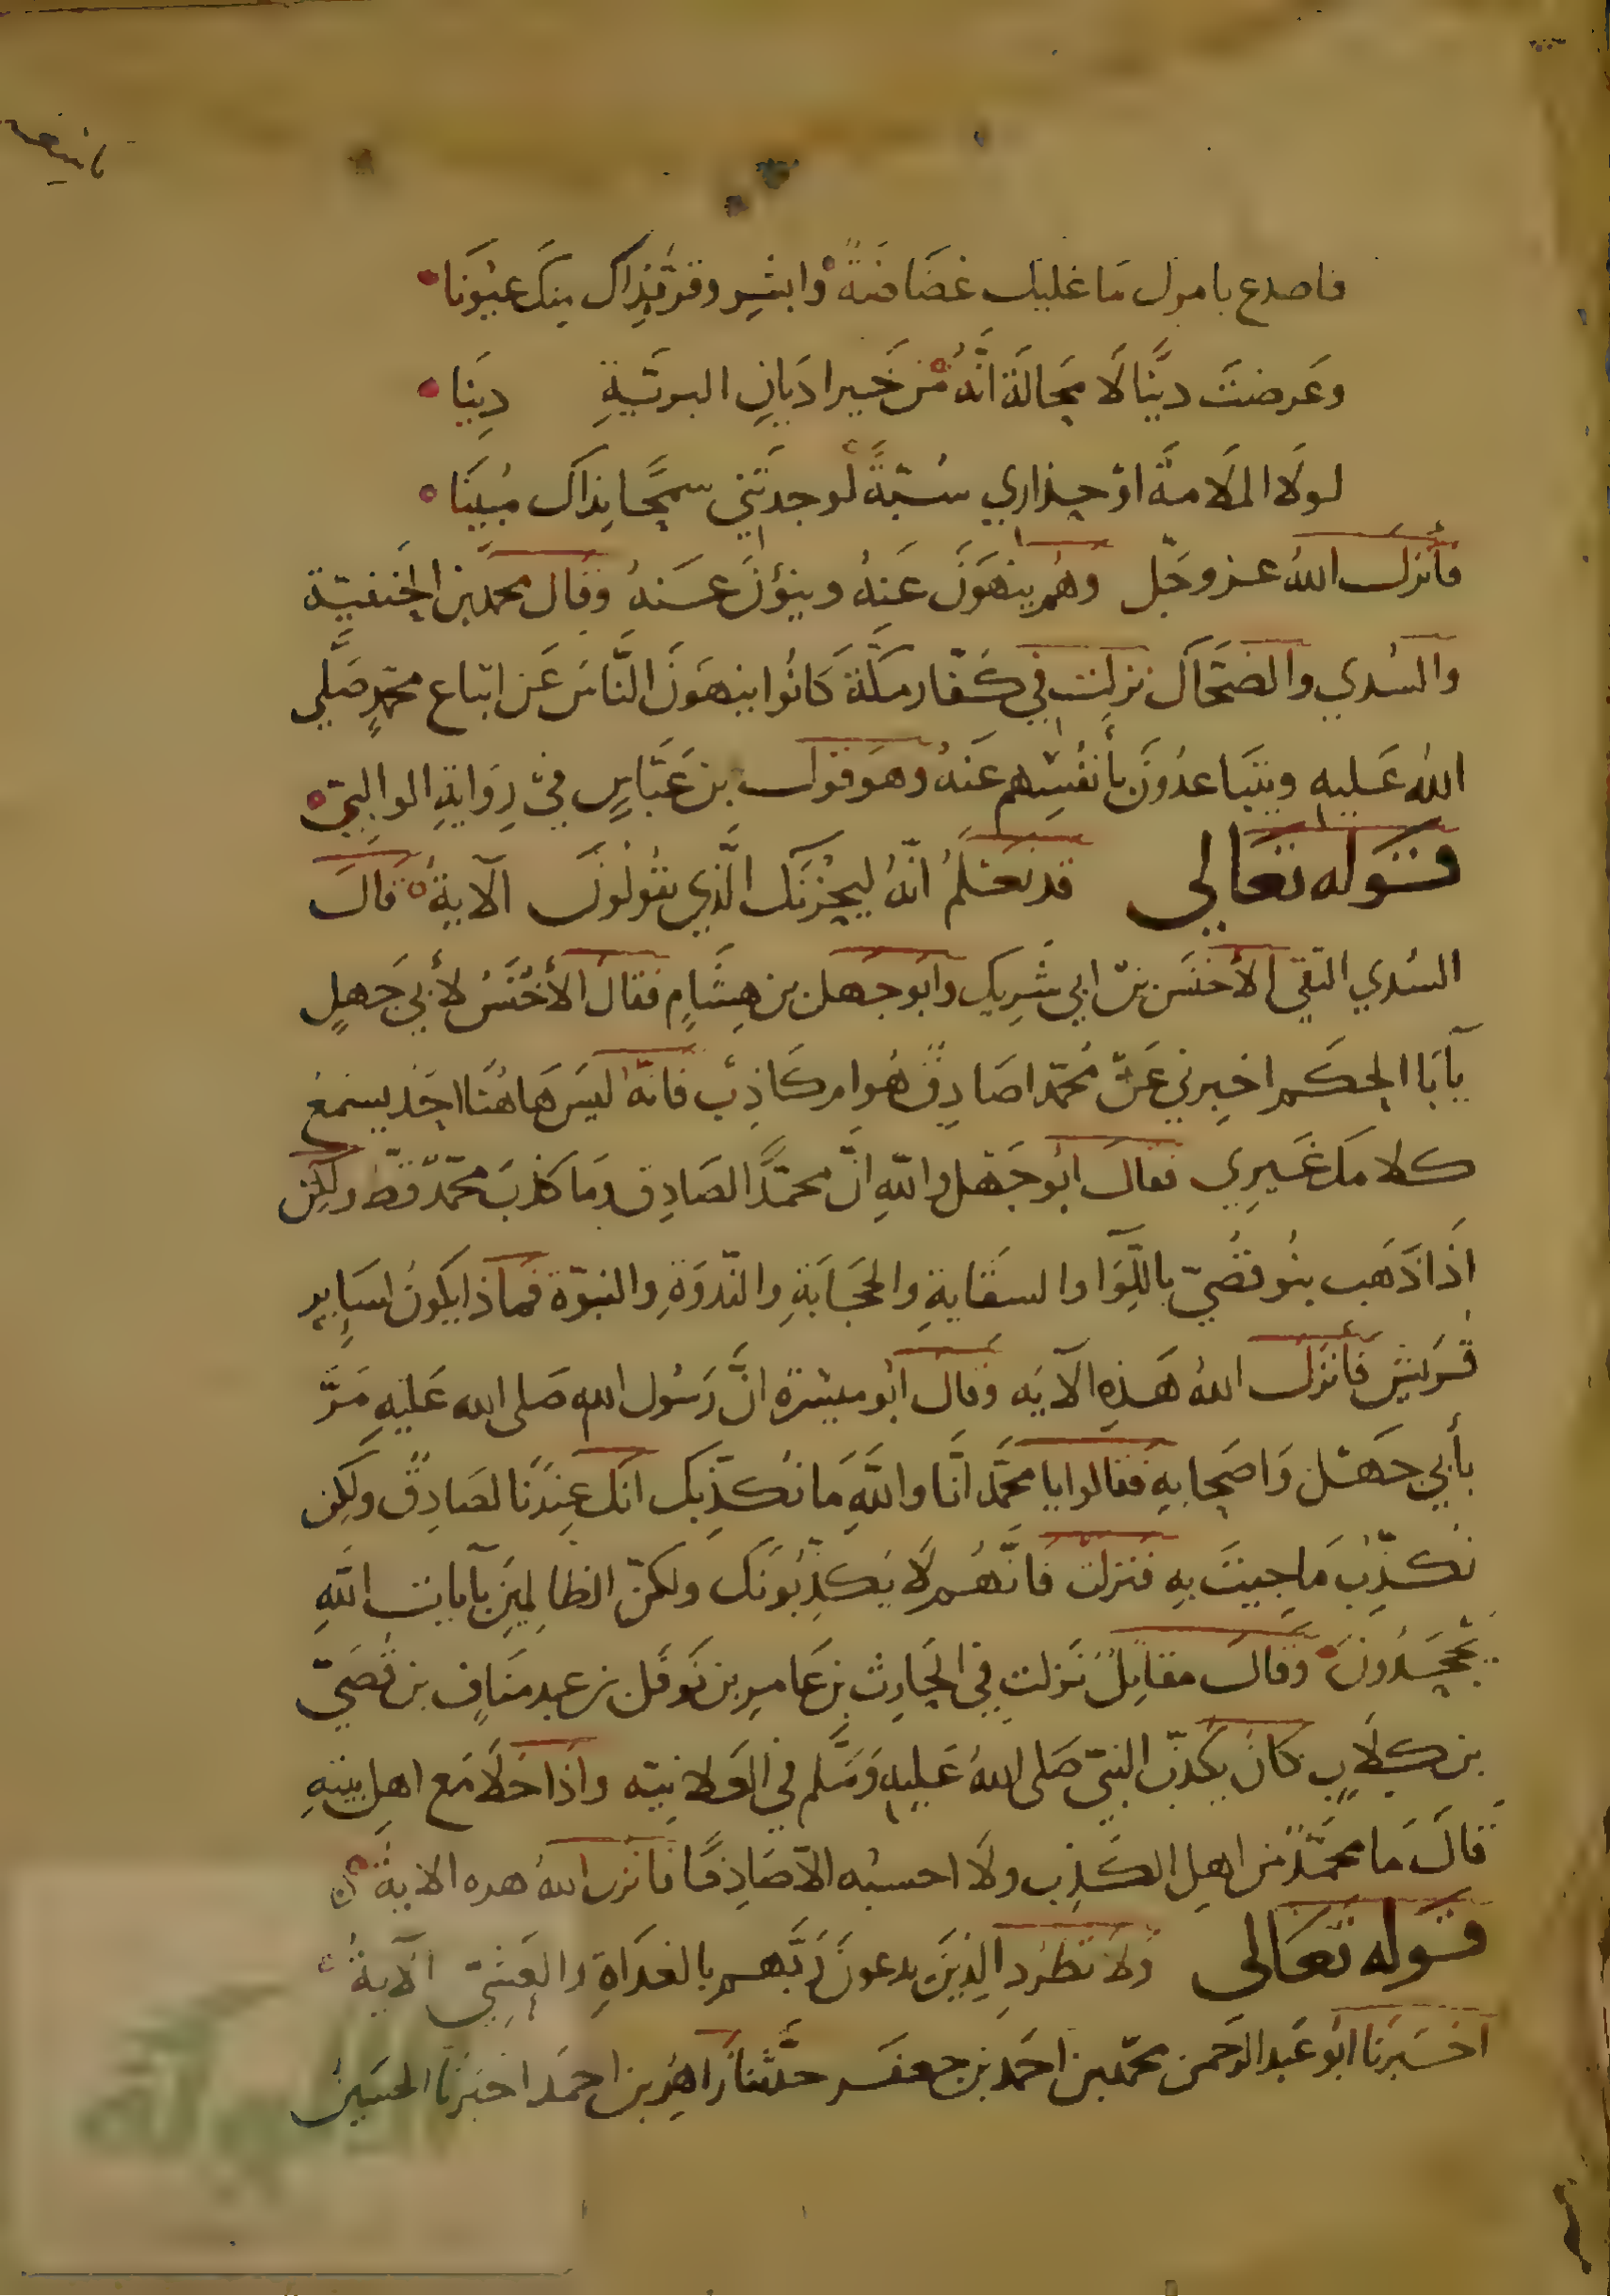 فاصدع بامرك ما عليك غضاضة وابشر وقر بذاك منك عيونا
وعرضت دينا لا محالة انه من خير اديان البرية دينا
لولا الملامة او حذاري سبة لوجدتني سمحا بذاك مبينا
فأنزل الله عز وجل وهم ينهون عنه وينؤن عنه وقال محمد بن الحنفية
والسدي والضحاك نزلت في كفار مكة كانوا ينهون الناس عن اتباع محمد صلى
الله عليه ويتباعدون بأنفسهم عنه وهو قول بن عباس في رواية الوالبي
قوله تعالى قد نعلم انه ليحزنك الذي يقولون الآية قال
السدي التقى الأخنس بن ابي شريك وابو جهل بن هشام فقال الأخنس لأبي جهل
يآبا الحكم اخبرني عن محمد اصادق هو ام كاذب فانه ليس هاهنا احد يسمع
كلامك غيري فقال ابو جهل والله ان محمدا لصادق وما كذب محمد قط ولكن
اذا ذهب بنو قصي باللوا والسقاية والحجابة والندوة والنبوة فماذا يكون لساير
قريش فأنزل الله هذه الآيه وقال ابو ميسرة ان رسول الله صلى الله عليه مر
بأبي جهل واصحابه فقالوا يا محمد انا والله ما نكذبك انك عندنا لصادق ولكن
نكذب ما جيت به فنزلت فانهم لا يكذبونك ولكن الظالمين بآيات الله
يجحدون وقال مقاتل نزلت في الحارث بن عامر بن نوفل بن عبد مناف بن قصي
بن كلاب كان يكذب النبي صلى الله عليه وسلم في العلانيته واذا خلا مع اهل بيته
قال ما محمد من اهل الكذب ولا احسبه الا صادقا فانزل الله هده الاية
قوله تعالى ولا تطرد الذين يدعون ربهم بالغداة والعشي الآية
اخبرنا ابو عبد الرحمن محمد بن احمد بن جعفر حدثنا زاهر بن احمد اخبرنا الحسين